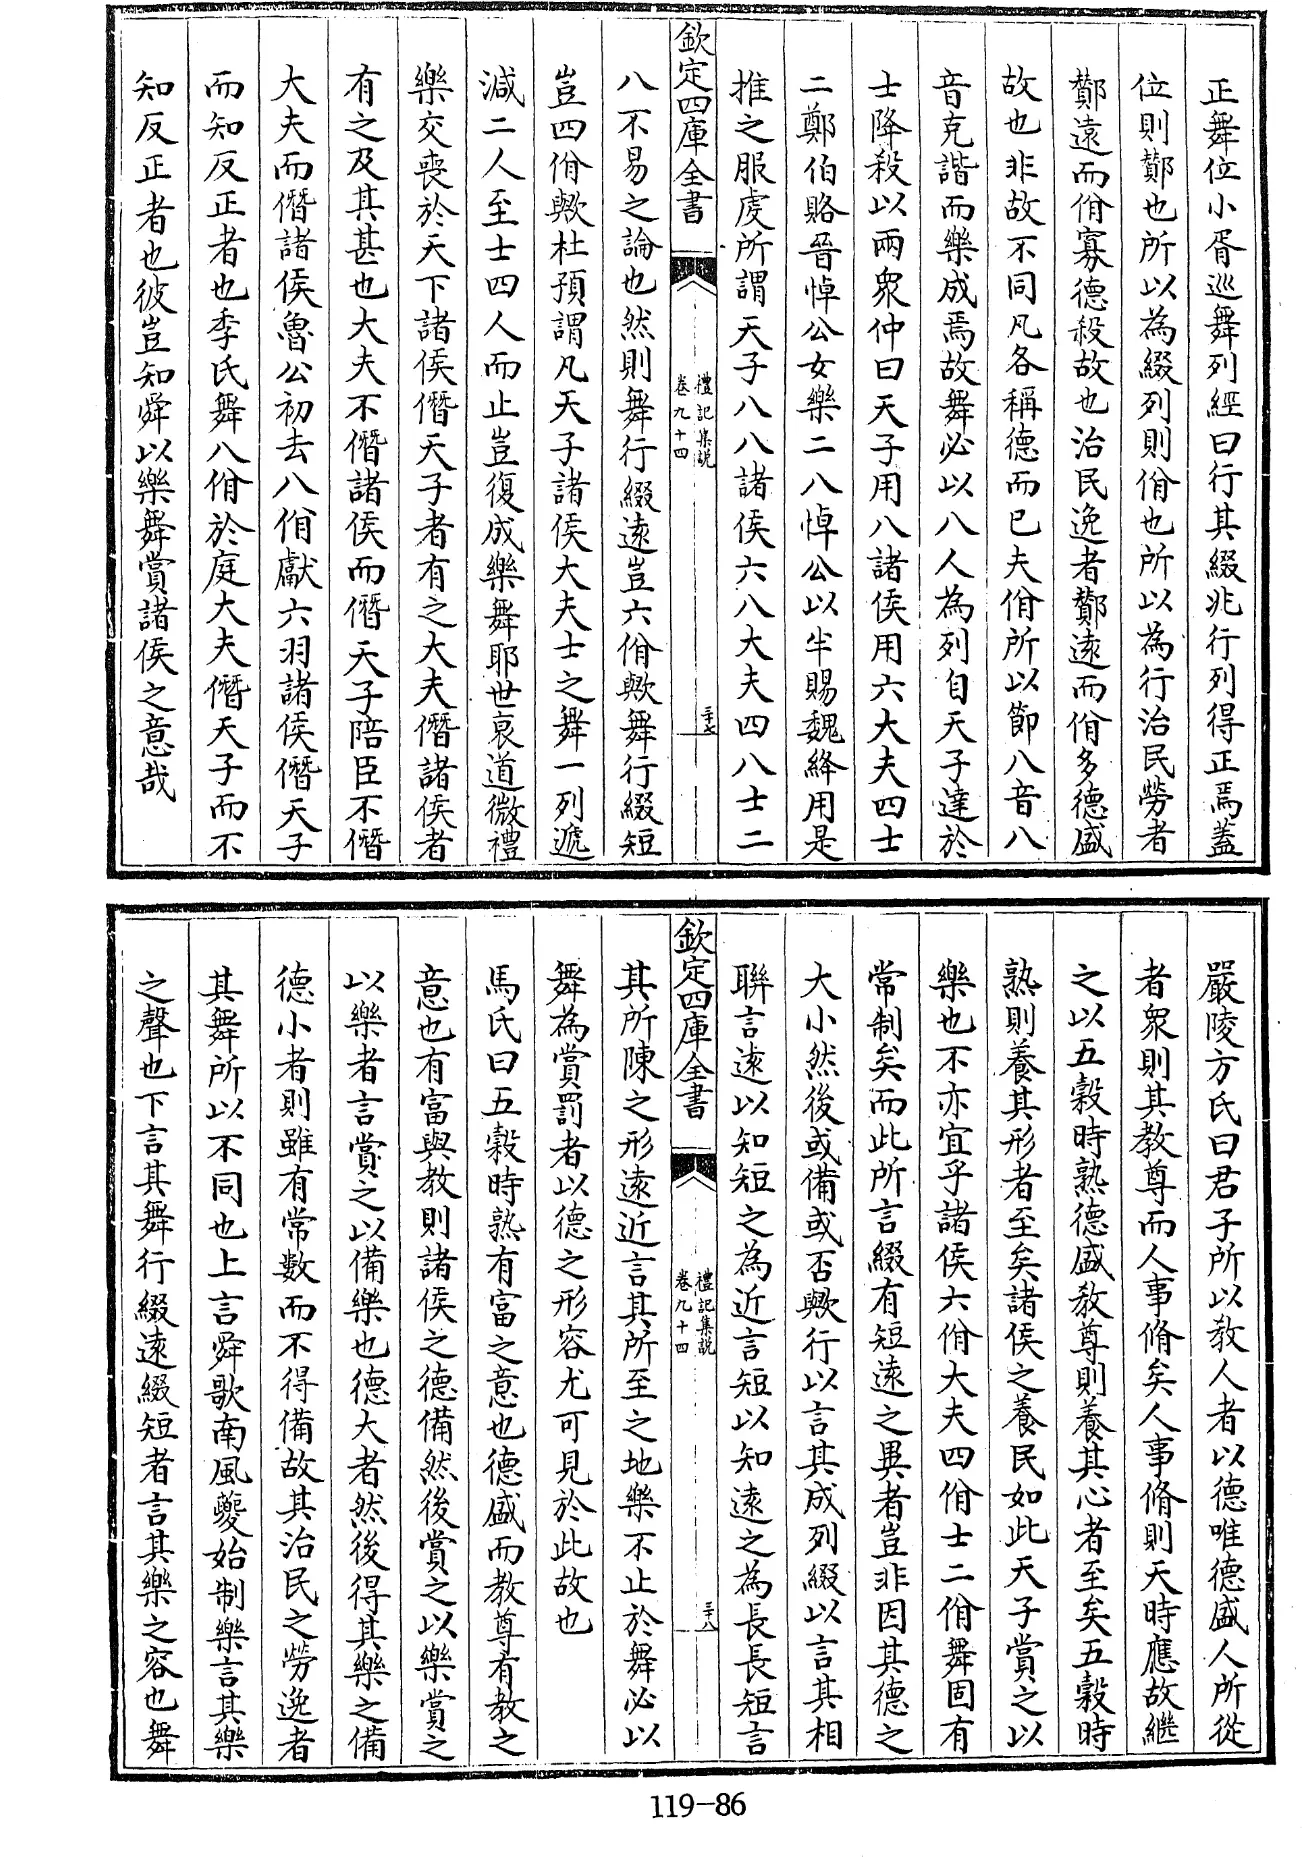 正舞位小胥巡舞列經曰行其綴兆行列得正焉蓋
位則酇也所以為綴列則佾也所以為行治民勞者
酇遠而佾寡德殺故也治民逸者酇遠而佾多德盛
故也非故不同凡各稱德而已夫佾所以節八音八
音克諧而樂成焉故舞必以八人為列自天子達於
士降殺以兩衆仲曰天子用八諸侯用六大夫四士
二鄭伯賂晉悼公女樂二八悼公以半賜魏絳用是
推之服虔所謂天子八八諸侯六八大夫四八士二
欽定四庫全書
禮記集説
卷九十四
三十七
八不易之論也然則舞行綴遠豈六佾歟舞行綴短
豈四佾歟杜預謂凡天子諸侯大夫士之舞一列遞
減二人至士四人而止豈復成樂舞耶世衰道微禮
樂交喪於天下諸侯僭天子者有之大夫僭諸侯者
有之及其甚也大夫不僭諸侯而僭天子陪臣不僭
大夫而僭諸侯魯公初去八佾獻六羽諸侯僭天子
而知反正者也季氏舞八佾於庭大夫僭天子而不
知反正者也彼豈知舜以樂舞賞諸侯之意哉
嚴陵方氏曰君子所以教人者以德唯德盛人所從
者衆則其教尊而人事脩矣人事脩則天時應故繼
之以五穀時熟德盛教尊則養其心者至矣五穀時
熟則養其形者至矣諸侯之養民如此天子賞之以
樂也不亦宜乎諸侯六佾大夫四佾士二佾舞固有
常制矣而此所言綴有短遠之異者豈非因其德之
大小然後或備或否歟行以言其成列綴以言其相
聯言遠以知短之為近言短以知遠之為長長短言
欽定四庫全書
禮記集説
卷九十四
三十八
其所陳之形遠近言其所至之地樂不止於舞必以
舞為賞罰者以德之形容尤可見於此故也
馬氏曰五穀時熟有富之意也德盛而教尊有教之
意也有富與教則諸侯之德備然後賞之以樂賞之
以樂者言賞之以備樂也德大者然後得其樂之備
德小者則雖有常數而不得備故其治民之勞逸者
其舞所以不同也上言舜歌南風夔始制樂言其樂
之聲也下言其舞行綴遠綴短者言其樂之容也舞
119-86